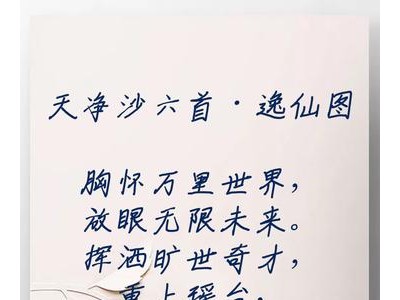 天净沙六首·逸仙图
胸怀万里世界，
放眼无限未来。
挥洒旷世奇才，
重上瑶台，